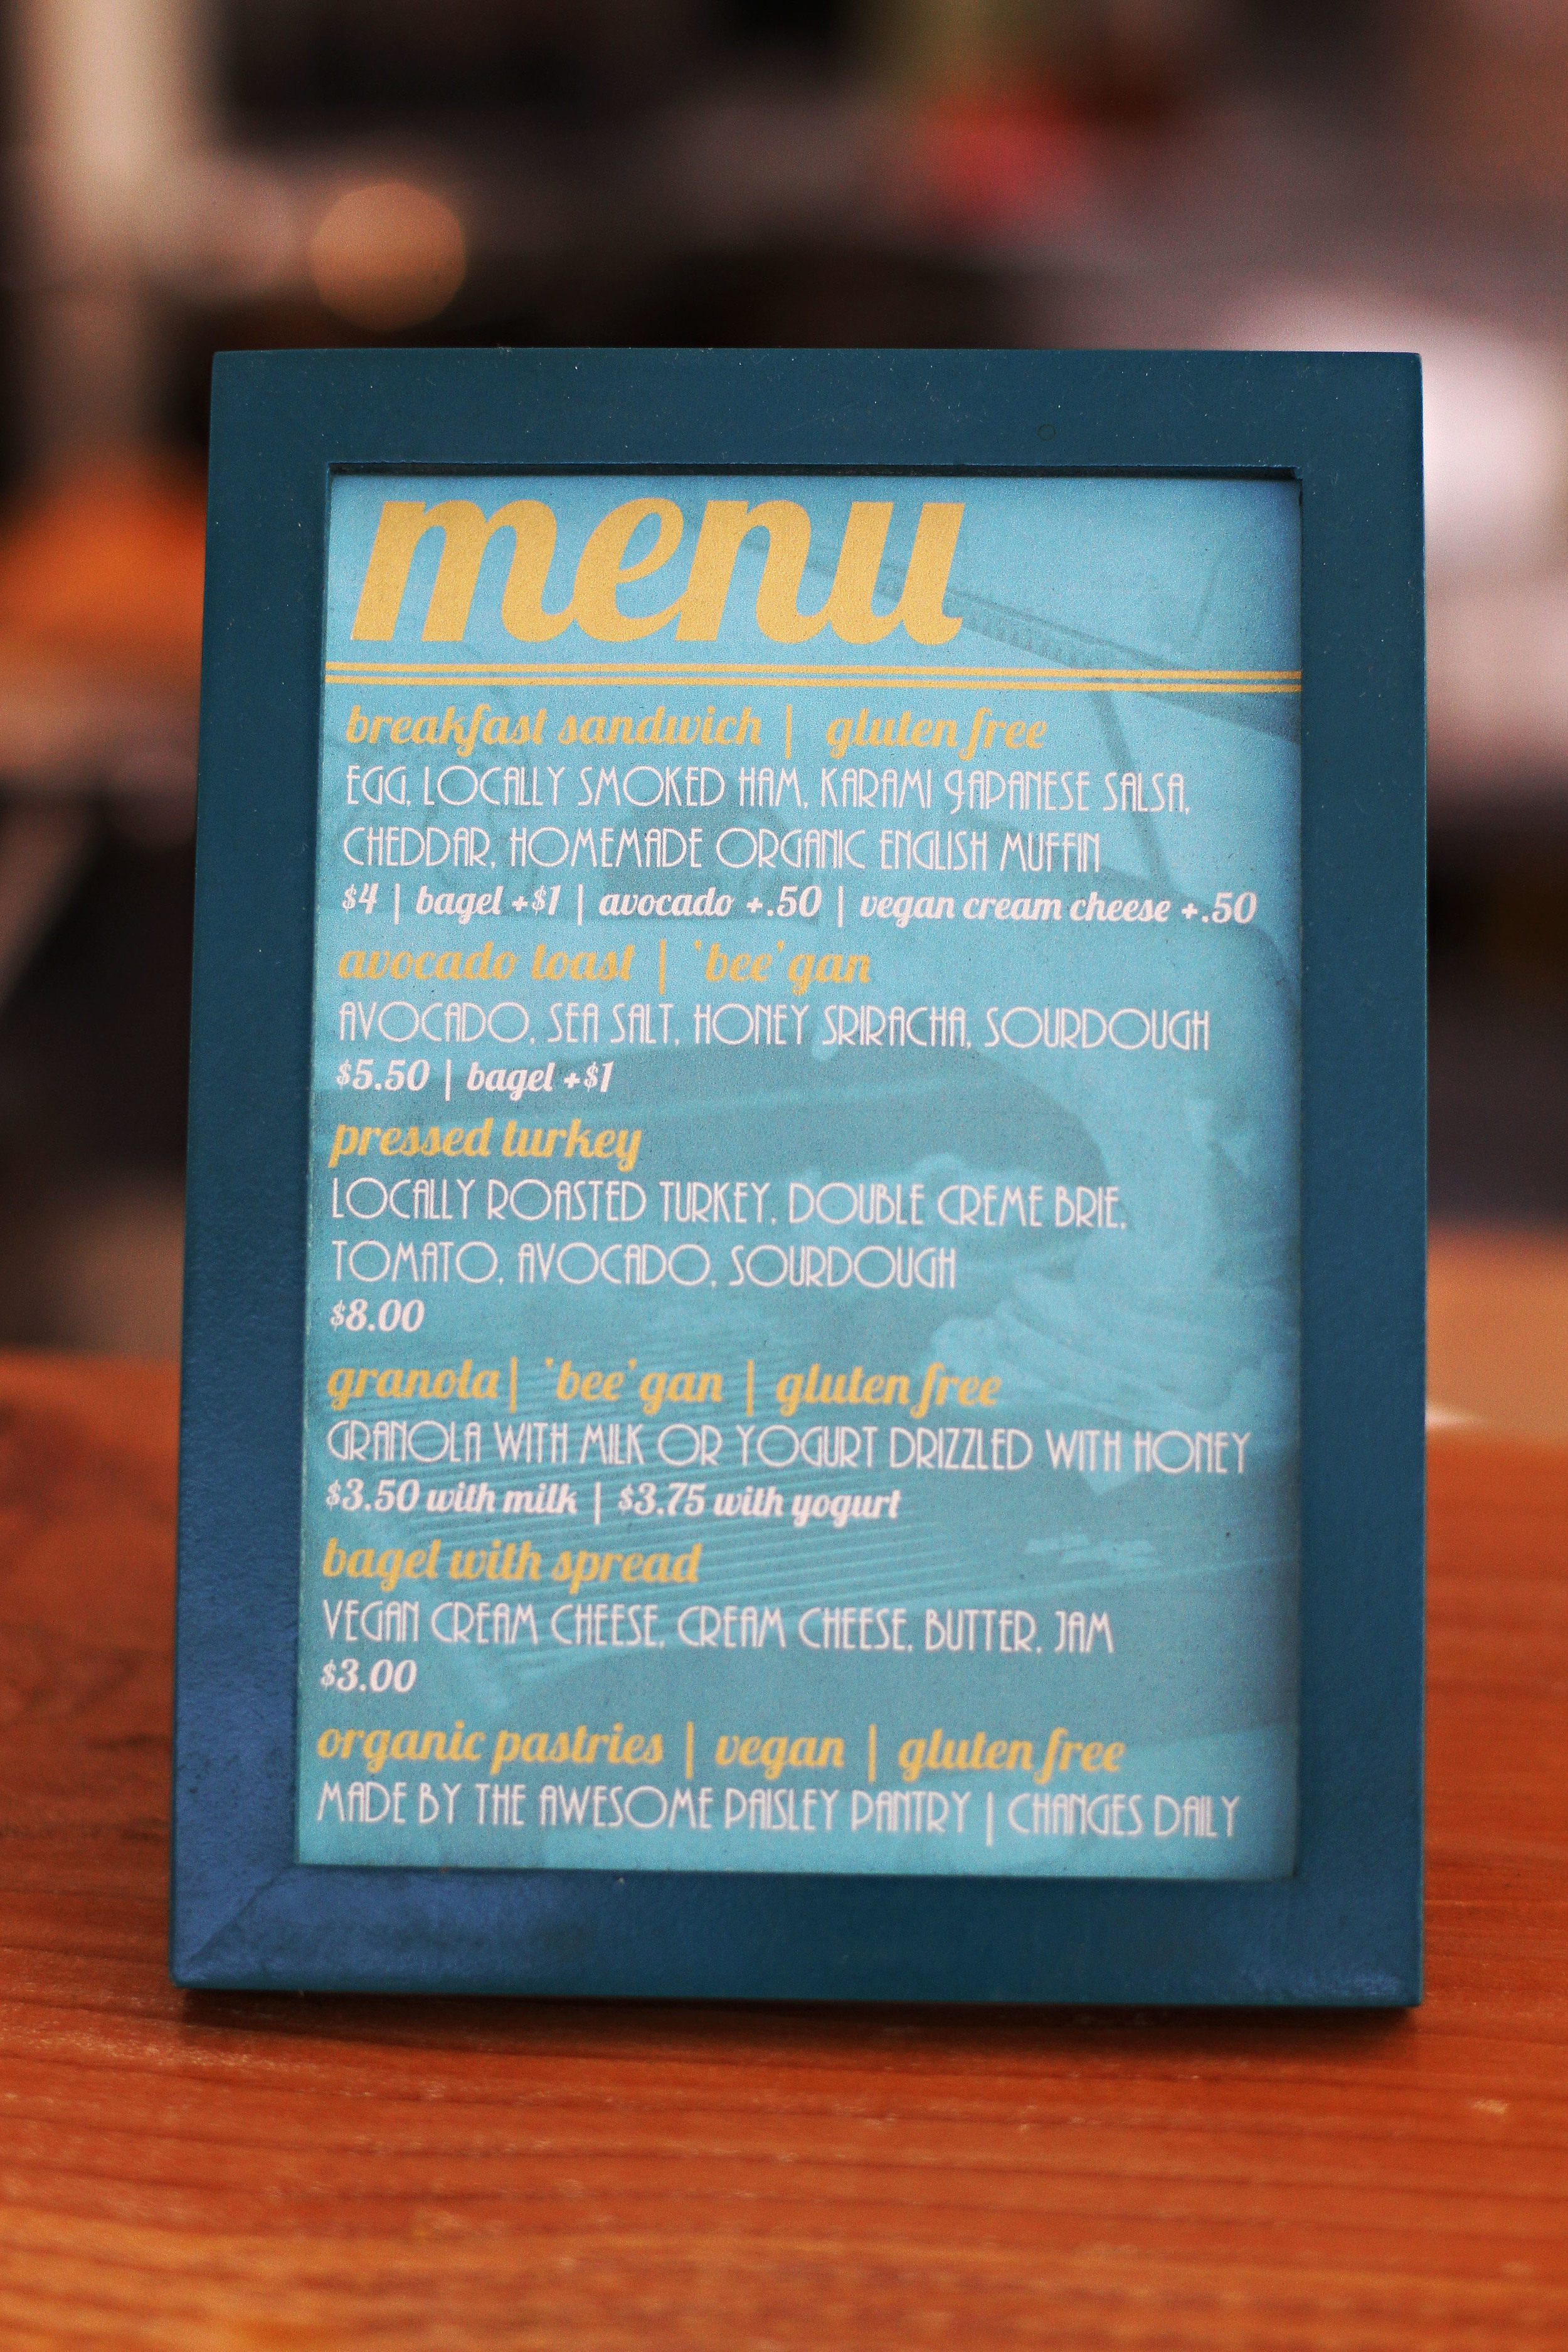 menu
breakfast sandwich | gluten free
EGG, LOCALLY SMOKED HAM, KARAMI JAPANESE SALSA,
CHEDDAR, HOMEMADE ORGANIC ENGLISH MUFFIN
$4 | bagel +$1 | avocado +.50 | vegan cream cheese +.50
avocado toast | 'bee'gan
AVOCADO, SEA SALT, HONEY SRIRACHA, SOURDOUGH
$5.50 | bagel +$1
pressed turkey
LOCALLY ROASTED TURKEY, DOUBLE CREME BRIE,
TOMATO, AVOCADO, SOURDOUGH
$8.00
granola| 'bee'gan | gluten free
GRANOLA WITH MILK OR YOGURT DRIZZLED WITH HONEY
$3.50 with milk | $3.75 with yogurt
bagel with spread
VEGAN CREAM CHEESE, CREAM CHEESE, BUTTER, JAM
$3.00
organic pastries | vegan | gluten free
MADE BY THE AWESOME PAISLEY PANTRY | CHANGES DAILY